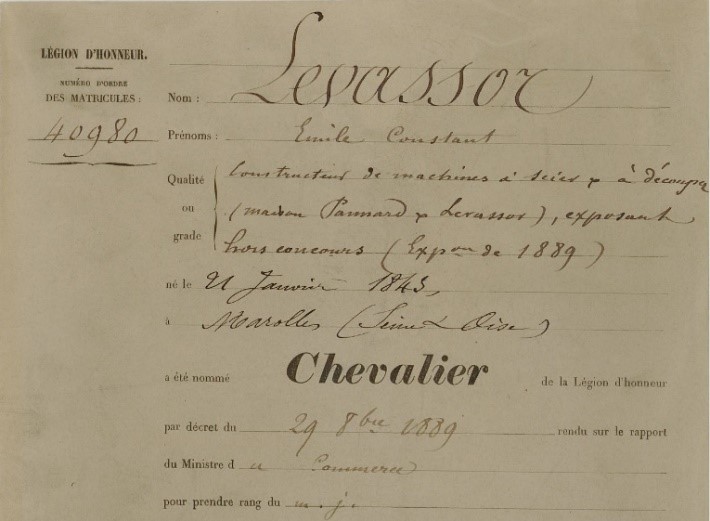 LÉGION D'HONNEUR.
NUMÉRO D'ORDRE
DES MATRICULES :
40980
Nom : Levassor
Prénoms : Emile Constant
Qualité ou grade
Constructeur de machines à scier & à découper
(maison Pannard & Levassor), exposant
hors concours (Expon de 1889)
né le 21 Janvier 1843,
à Marolles (Seine & Oise)
a été nommé Chevalier de la Légion d'honneur
par décret du 29 8bre 1889 rendu sur le rapport
du Ministre du Commerce
pour prendre rang du m. j.